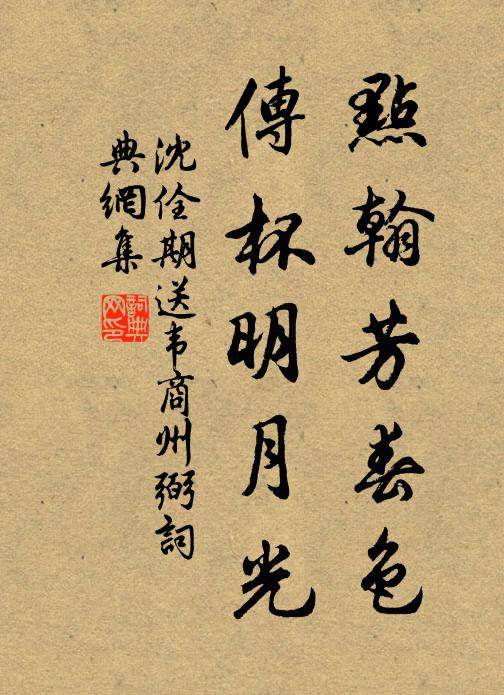 點翰芳春色
傳杯明月光
沈佺期送韦商州弼詞
典網集
詞典
网印